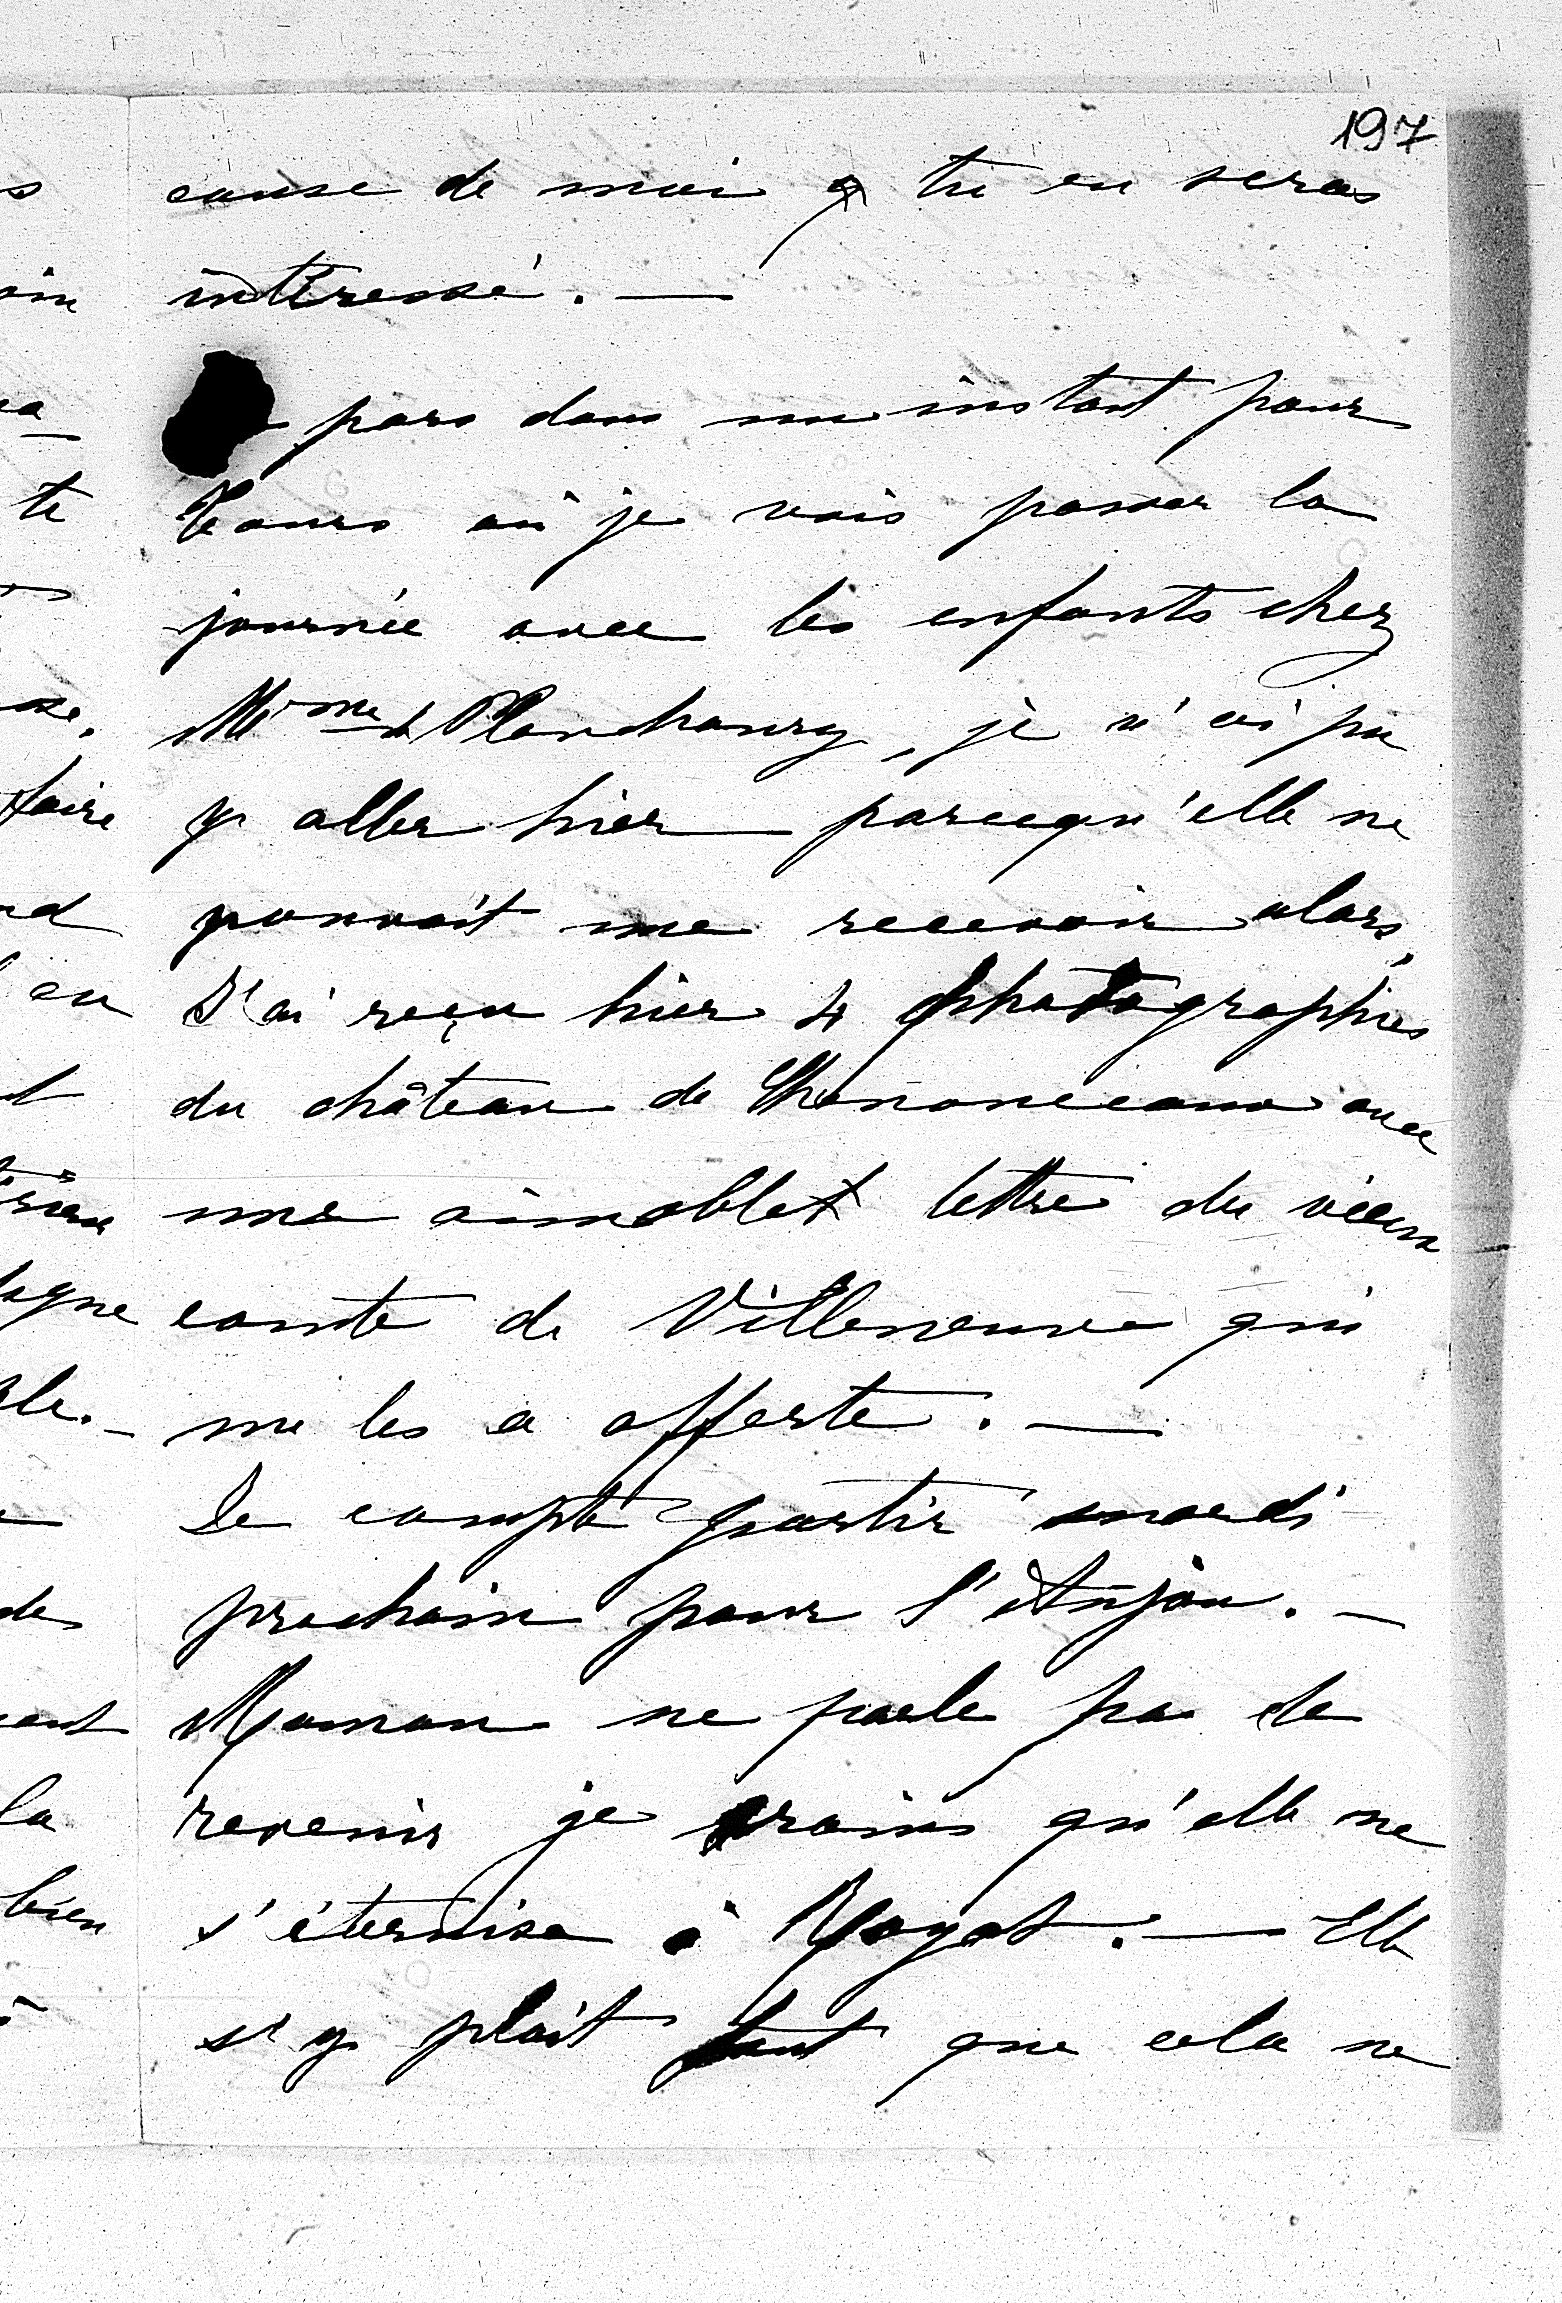 197
cause de moi & tu en seras
intéressé. —
pars dans un instant pour
Tours où je vais passer la
journée avec les enfants chez
Mme de Planchoury, je n'ai pu
y aller hier parcequ'elle ne
pouvait me recevoir alors,
J'ai reçu hier 4 photographies
du château de Chenonceaux avec
une aimable lettre du vieux
comte de Villeneuve qui
me les a offerte. —
Je compte partir mardi
prochain pour l'Anjou. —
Maman ne parle pas de
revenir je crains qu'elle ne
s'éternise à Royat. — Elle
s'y plait tant que cela ne